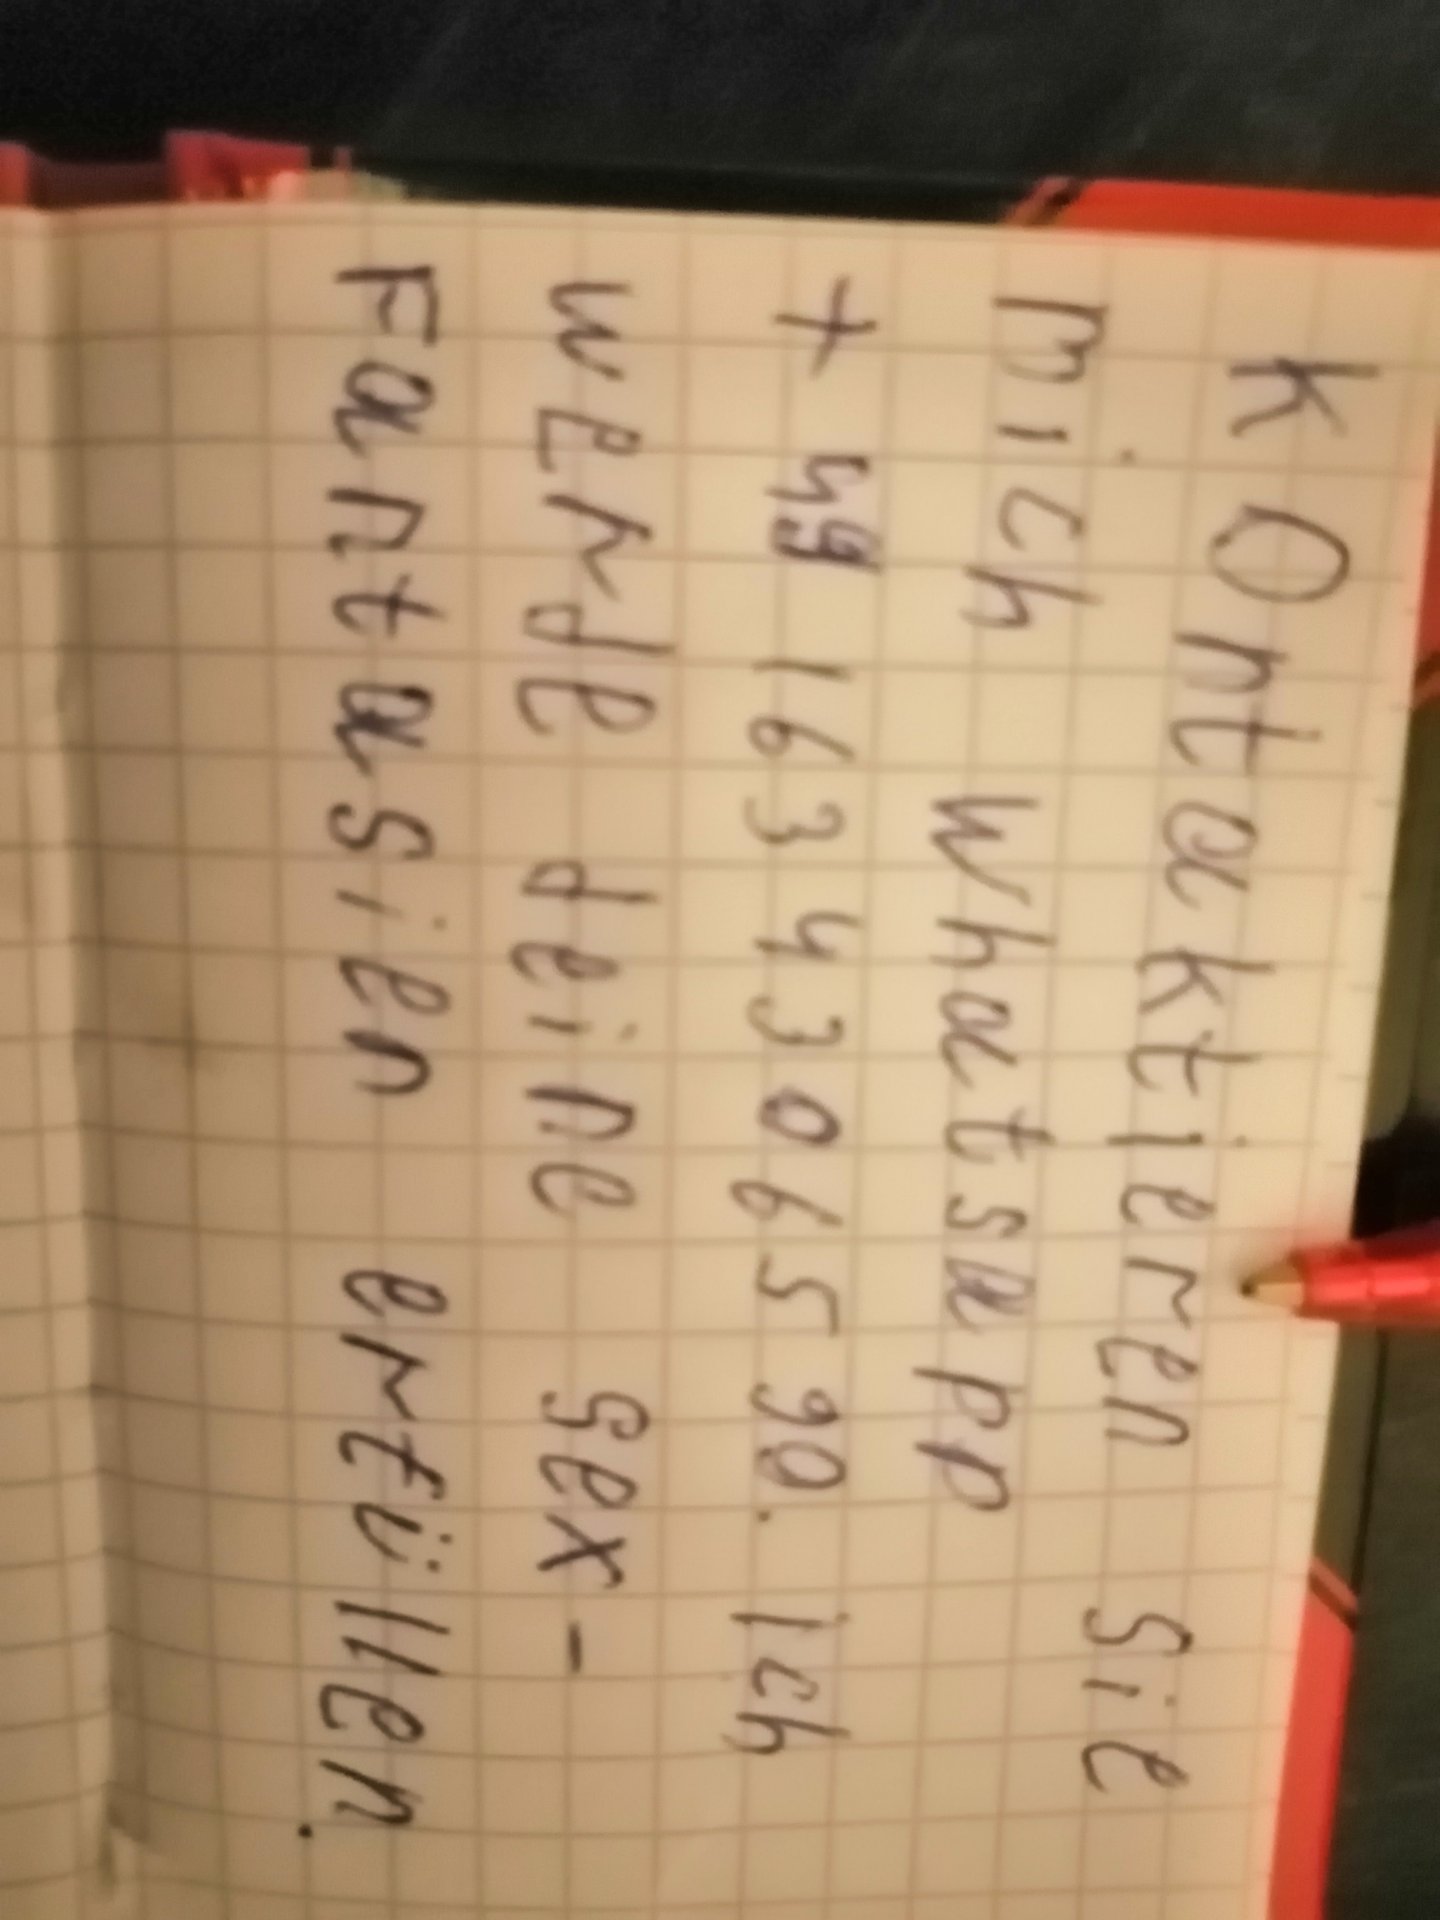 Kontaktieren Sie
mich Whatsapp
+49 163 430 65 90. Ich
werde deine Sex-
Fantasien erfüllen.